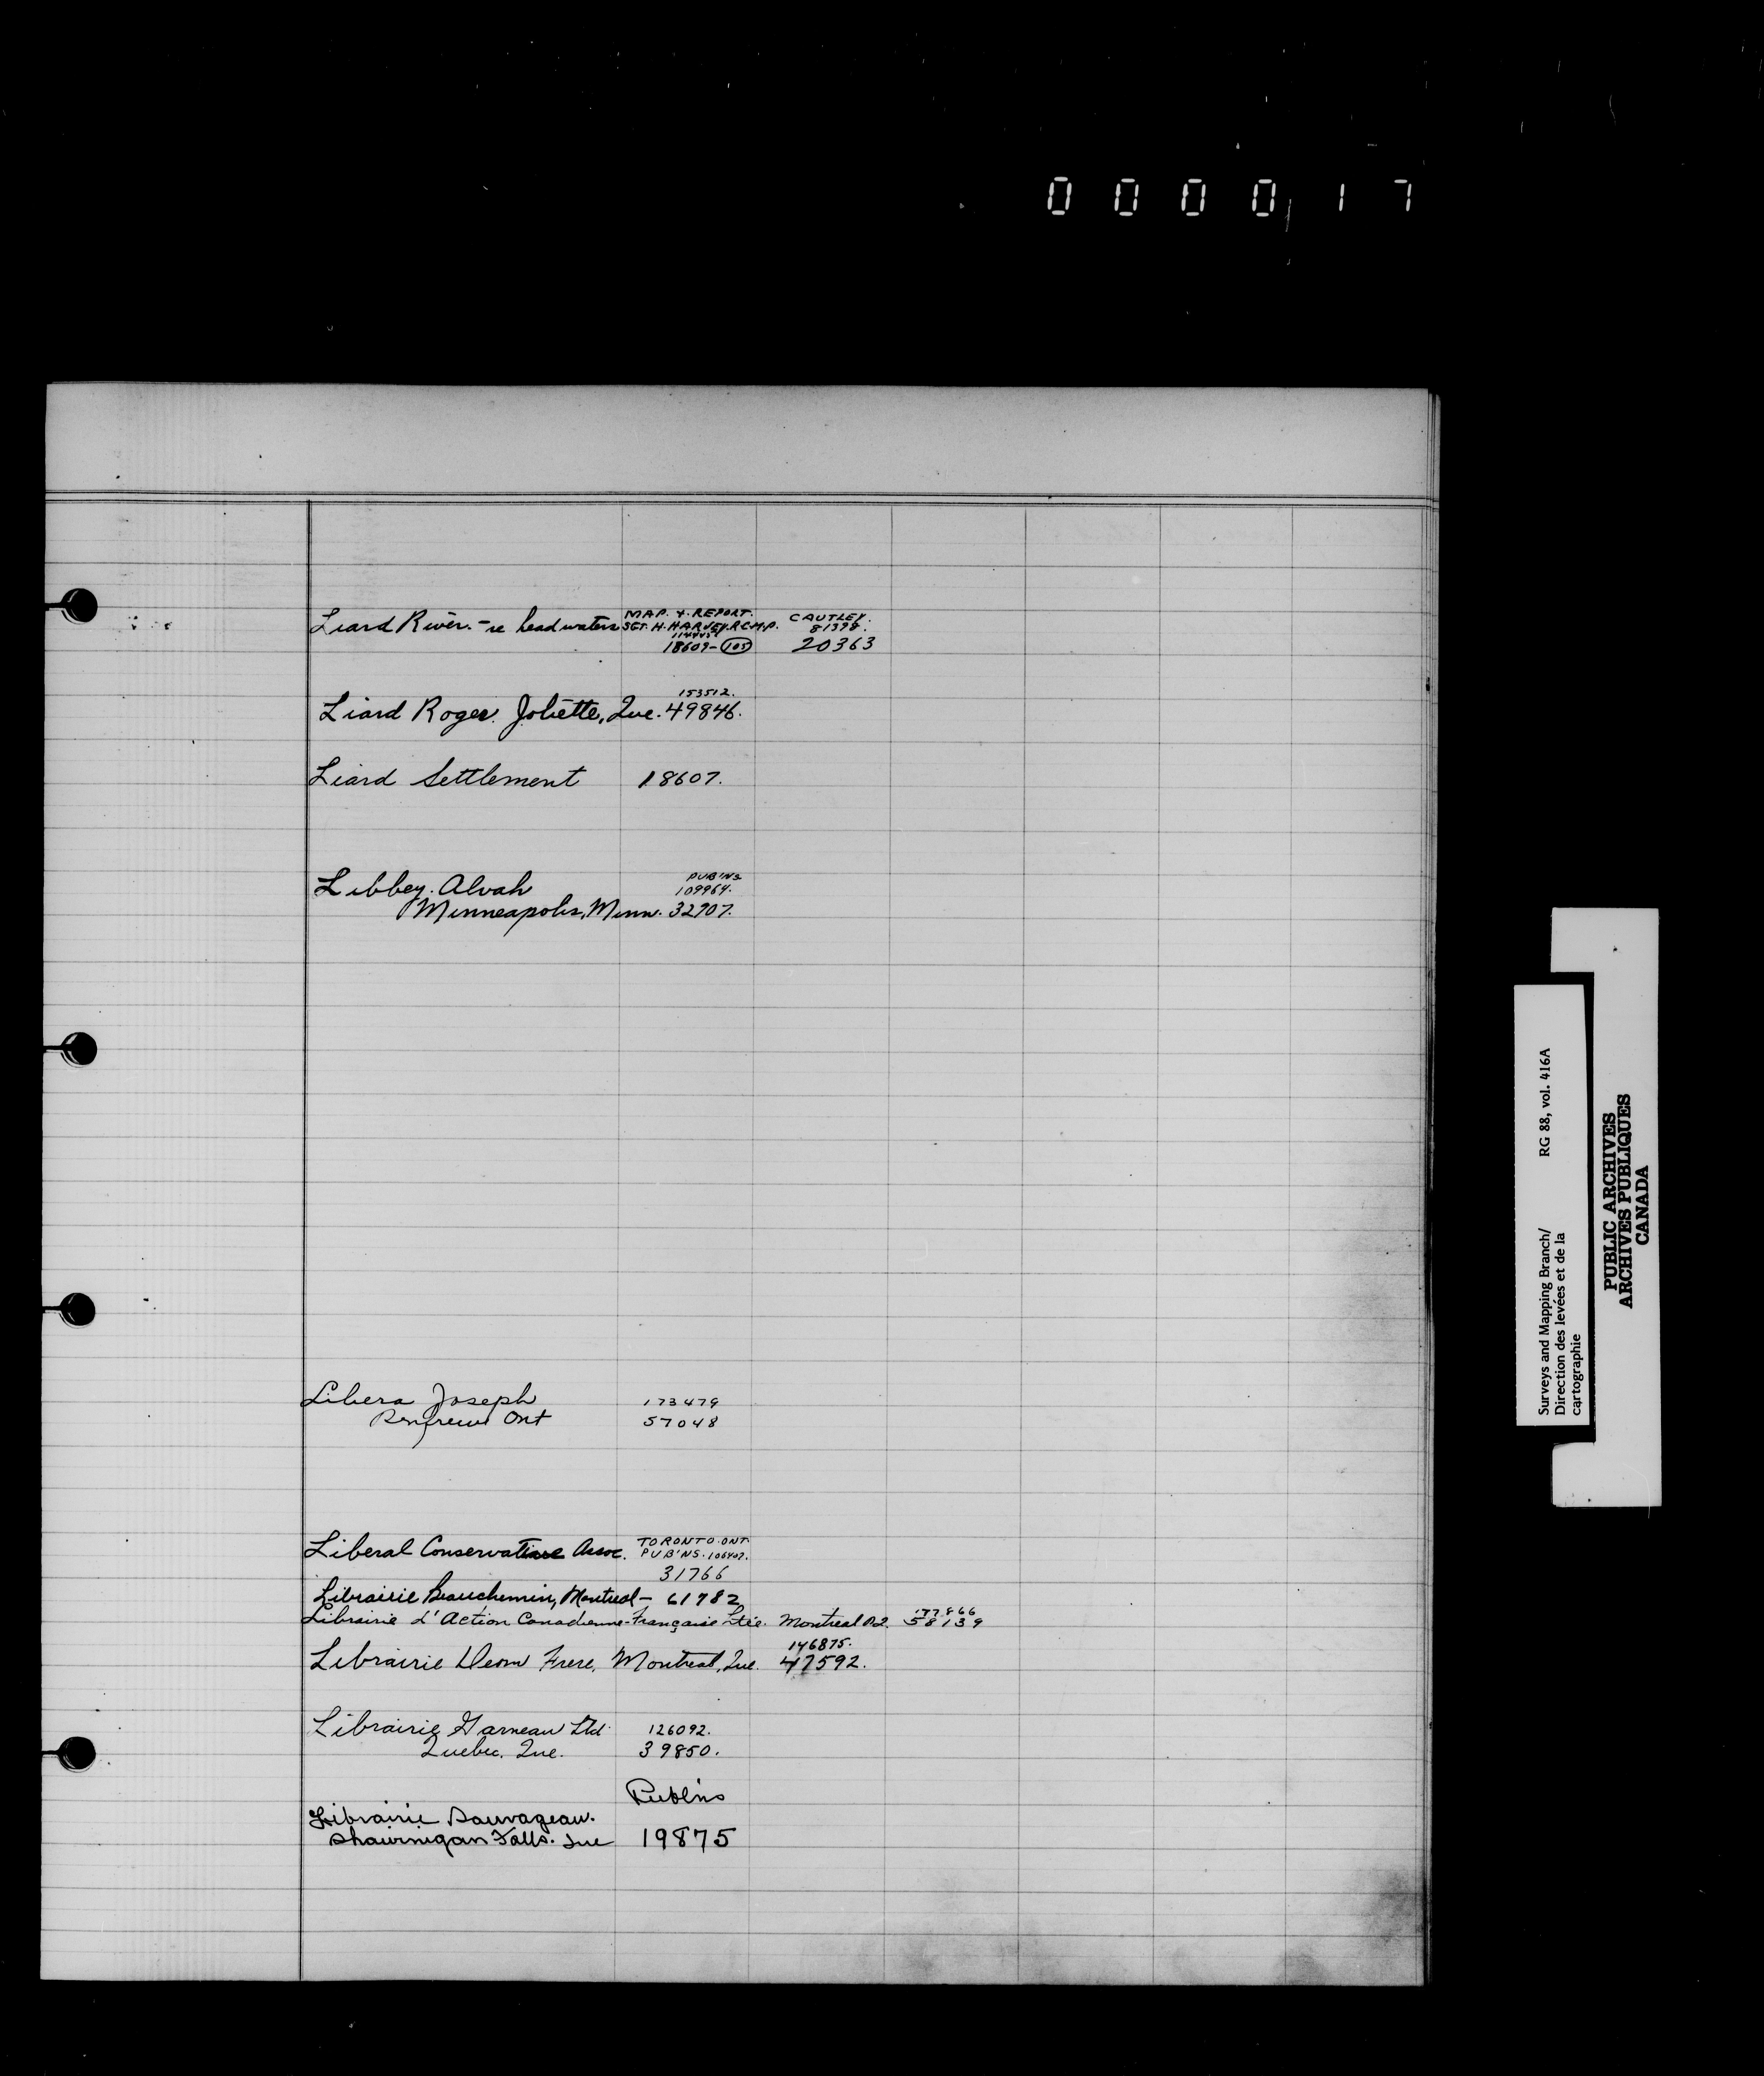 0 0 0 0 1 7
MAP. & REPORT. CAUTLEY.
Liard River. - re headwaters SGT. H. HARVEY. R.C.M.P. 81398.
18609-(105) 20363
153512.
Liard Roger. Joliette, Que. 49846.
Liard Settlement 18607.
PUB'NS
Libbey. Alvah 109964.
Minneapolis, Minn. 32907.
Libera Joseph 173479
Renfrew Ont 57048
TORONTO. ONT.
Liberal Conservative Assoc. PUB'NS. 106407.
31766
Librairie Beauchemin, Montreal - 61782
177866
Librairie d'Action Canadienne-Française Ltée. Montreal P.Q. 58139
146875.
Librairie Deom Frere, Montreal, Que. 47592.
Librairie Garneau Ltd. 126092.
Quebec. Que. 39850.
Publ'ns
Librairie Sauvageau.
Shawinigan Falls. Que 19875
Surveys and Mapping Branch/ RG 88, vol. 416A
Direction des levées et de la
cartographie
PUBLIC ARCHIVES
ARCHIVES PUBLIQUES
CANADA